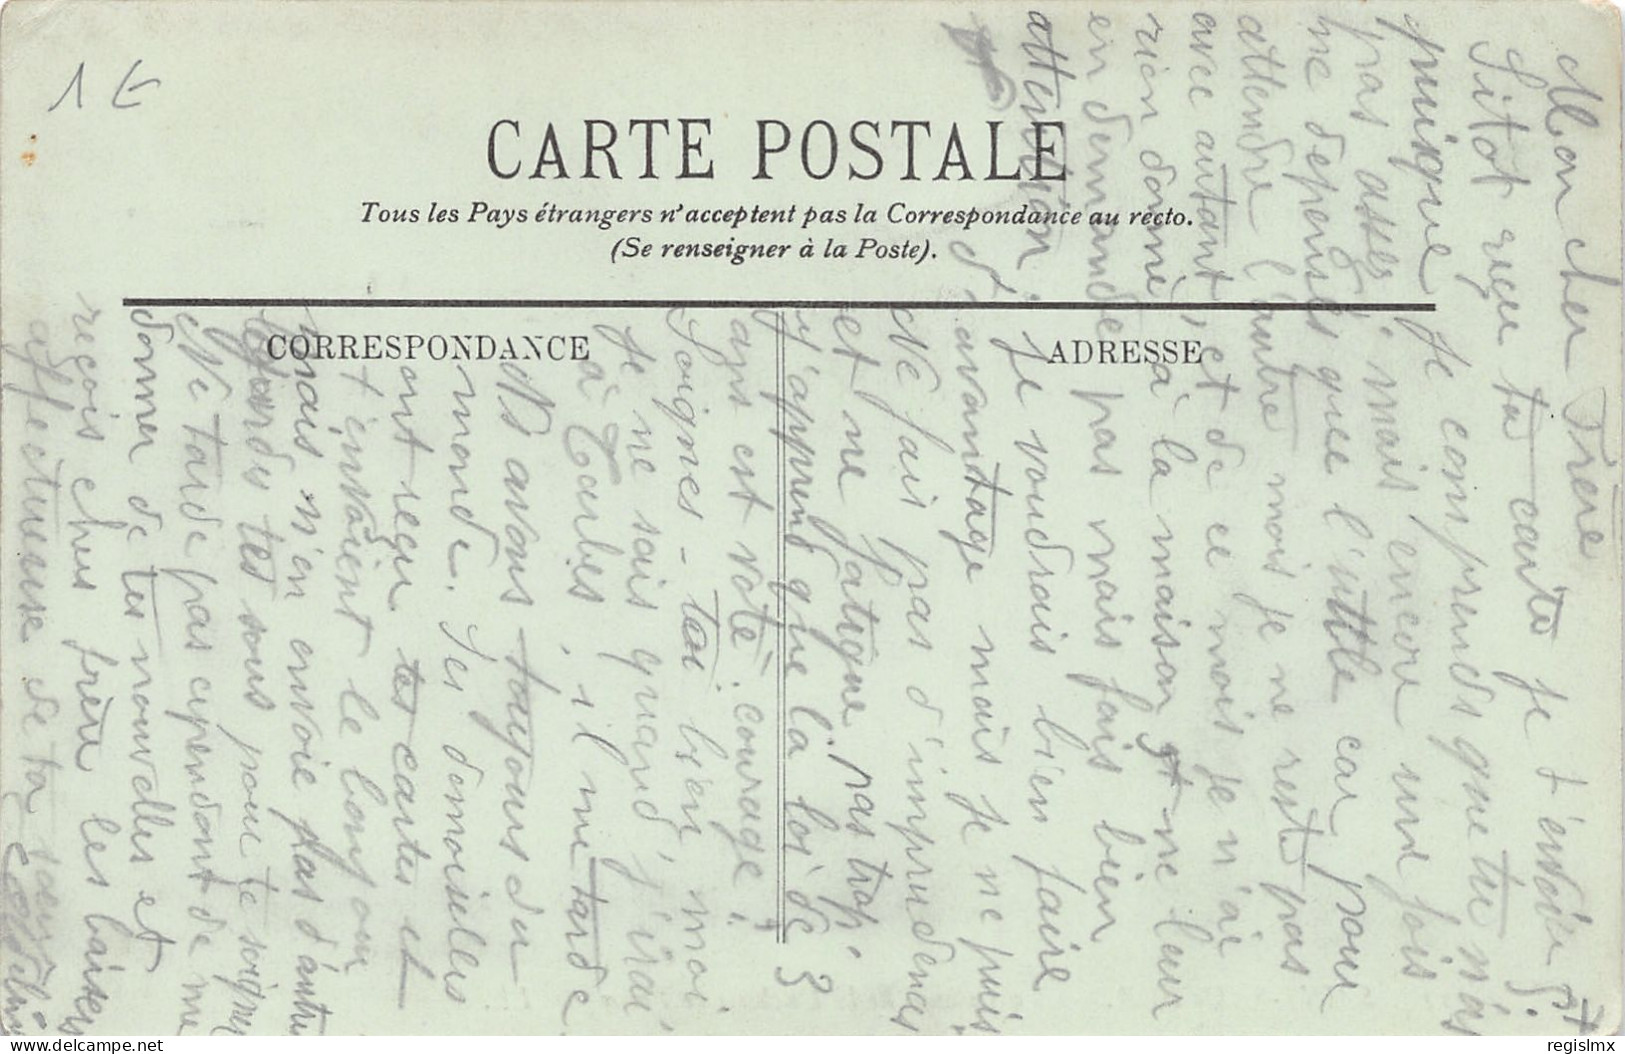 1 €
CARTE POSTALE
Tous les Pays étrangers n'acceptent pas la Correspondance au recto.
(Se renseigner à la Poste).
CORRESPONDANCE
ADRESSE
Mon cher Frère
Sitot reçu ta carte je t'envoie 5f
puisque je comprends que tu n'as
pas assez, mais encore une fois
ne depenses que l'utile car pour
attendre l'autre mois je ne reste pas
avec autant, et de ce mois je n'ai
rien donné à la maison et ne leur
en demande pas mais fais bien
attention. Je voudrais bien faire
d'avantage mais je ne puis
Ne fais pas d'imprudences
et ne fatigue pas trop.
j'apprend que la loi de 3
ans est voté. courage!
Soignes-toi bien moi
je ne sais quand j'irai
à Tarbes. il me tarde
Ns avons toujours du
monde. Les demoiselles
ont reçu tes cartes et
t'envoient le bonjour
mais n'en envoie pas d'autres
gardes tes sous pour te soigner
Ne tarde pas cependant de me
donner de tes nouvelles et
reçois cher frère les baisers
affectueuse de ta soeur
delcampe.net
regislmx